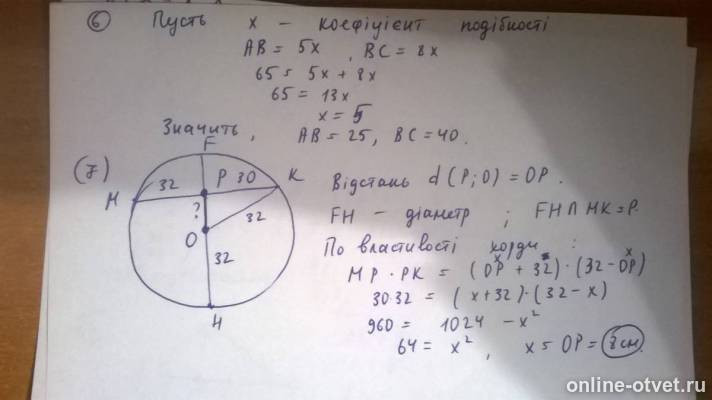 6 Пусть x - коефіцієнт подібності
AB = 5x, BC = 8x
65 = 5x + 8x
65 = 13x
x = 5
Значить, AB = 25, BC = 40.
(7)
F
M 32 P 30 K
?
32
O
32
H
Відстань d(P;O) = OP.
FH - діаметр; FH∩MK=P.
По властивості хорди:
x x
MP · PK = (OP + 32) · (32 - OP)
30·32 = (x+32)·(32-x)
960 = 1024 - x²
64 = x², x = OP = 8 см.
online-otvet.ru